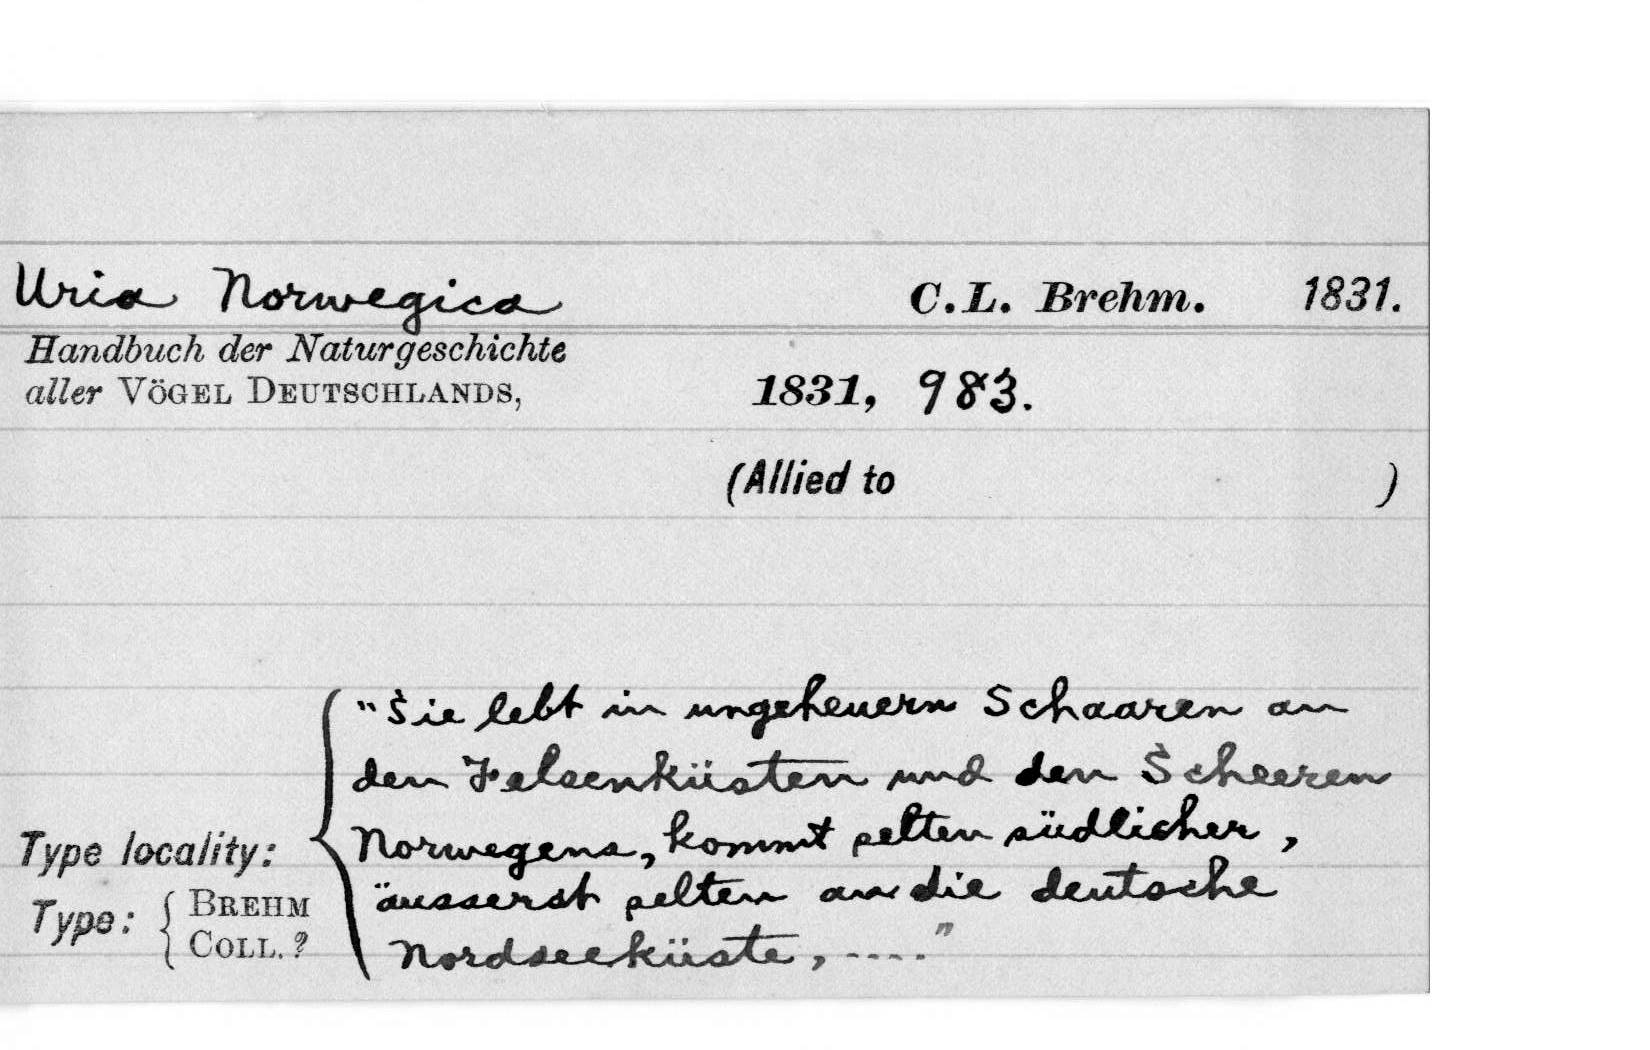 Uria Norwegica C.L. Brehm. 1831.
Handbuch der Naturgeschichte
aller VÖGEL DEUTSCHLANDS, 1831, 983.
(Allied to )
"Sie lebt in ungeheuern Schaaren an
den Felsenküsten und den Scheeren
Type locality: Norwegens, kommt selten südlicher,
Type: { BREHM COLL. ? äusserst selten an die deutsche
Nordseeküste, ....."